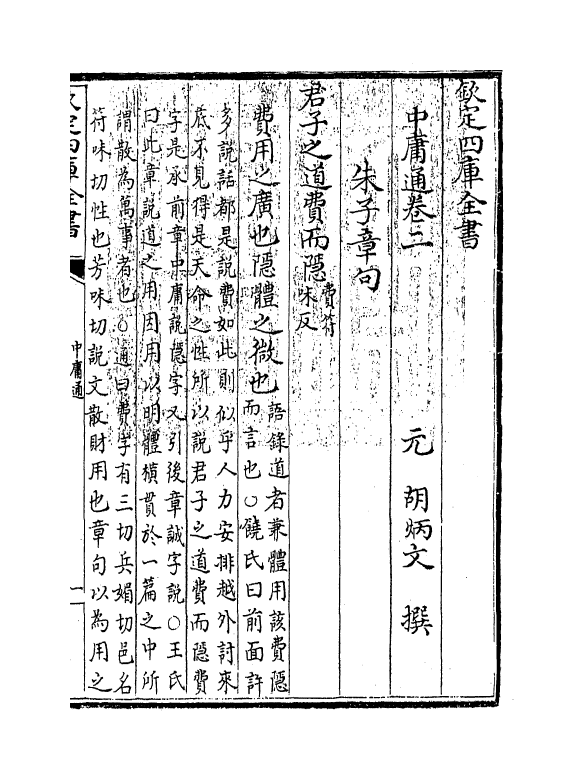 欽定四庫全書
中庸通卷二
元 胡炳文 撰
朱子章句
君子之道費而隱費符味反
費用之廣也隱體之微也語錄道者兼體用該費隱
而言也○饒氏曰前面許
多說話都是說費如此則似乎人力安排越外討來
底不見得是天命之性所以說君子之道費而隱費
字是承前章中庸說隱字又引後章誠字說○王氏
曰此章說道之用因用以明體橫貫於一篇之中所
謂散為萬事者也○通曰費字有三切兵媚切邑名
符味切性也芳味切說文散財用也章句以為用之
欽定四庫全書
中庸通
一